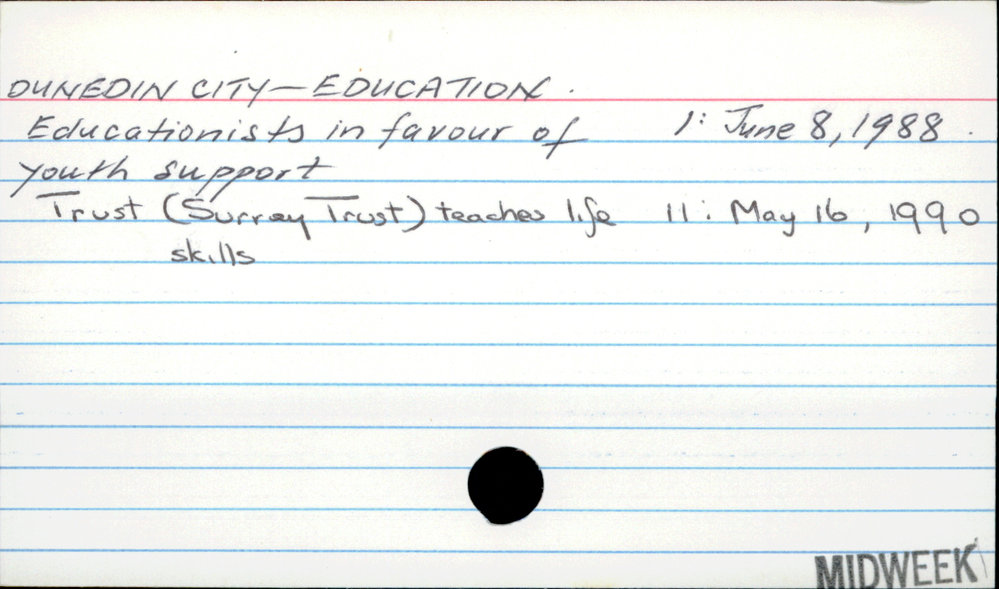 DUNEDIN CITY — EDUCATION.
Educationists in favour of 1: June 8, 1988.
youth support
Trust (Surrey Trust) teaches life 11: May 16, 1990
skills
MIDWEEK